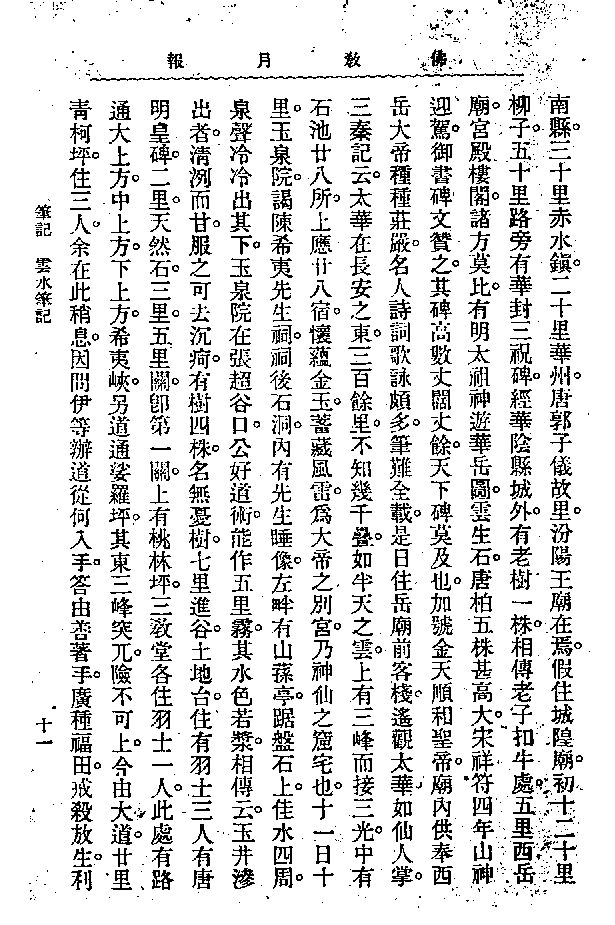 佛教月報
南縣。三十里赤水鎮。二十里華州。唐郭子儀故里。汾陽王廟在焉。假住城隍廟。初十二十里
柳子。五十里路旁有華封三祝碑。經華陰縣城。外有老樹一株。相傳老子扣牛處。五里西岳
廟。宮殿樓閣。諸方莫比。有明太祖神遊華岳圖。雲生石。唐柏五株甚高大。宋祥符四年山神
迎駕。御書碑文贊之。其碑高數丈闊丈餘。天下碑莫及也。加號金天順和聖帝。廟內供奉西
岳大帝。種種莊嚴。名人詩詞歌詠頗多。筆難全載。是日住岳廟前客棧。遙觀太華如仙人掌。
三秦記云。太華在長安之東。三百餘里。不知幾千疊。如半天之雲。上有三峰而接三光。中有
石池廿八所。上應廿八宿。懷蘊金玉。蓄藏風雷。爲大帝之別宮。乃神仙之窟宅也。十一日十
里。玉泉院。謁陳希夷先生祠。祠後石洞。內有先生睡像。左畔有山蓀亭。踞盤石上。佳水四周。
泉聲冷冷。出其下。玉泉院在張超谷口。公好道術。能作五里霧。其水色若漿。相傳云。玉井滲
出者。清洌而甘。服之可去沉疴。有樹四株。名無憂樹。七里進谷。土地台。住有羽士三人。有唐
明皇碑。二里天然石。三里。五里關。卽第一關。上有桃林坪。三敎堂各住羽士一人。此處有路
通大上方。中上方。下上方。希夷峽。另道通娑羅坪。其東三峰突兀。險不可上。今由大道。廿里
青柯坪。住三人。余在此稍息。因問伊等辦道從何入手。答由善著手。廣種福田。戒殺放生。利
筆記 雲水筆記
十一